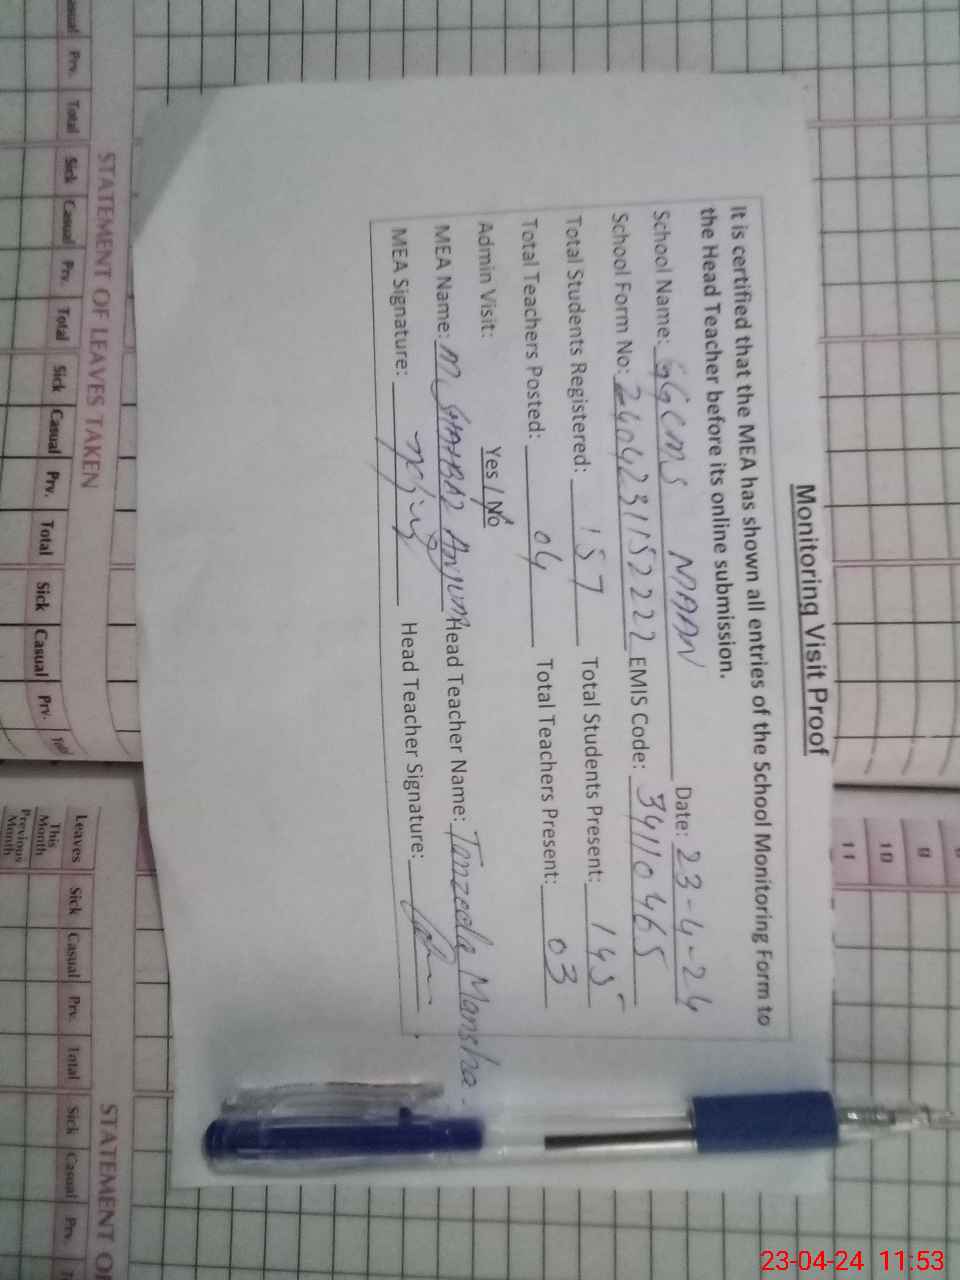 Monitoring Visit Proof
It is certified that the MEA has shown all entries of the School Monitoring Form to
the Head Teacher before its online submission.
School Name: GGCMS MAAN Date: 23-4-24
School Form No: 2404231152222 EMIS Code: 34110465
Total Students Registered: 157 Total Students Present: 145
Total Teachers Posted: 04 Total Teachers Present: 03
Admin Visit: Yes / No
MEA Name: M SHAHBAZ Anjum Head Teacher Name: Tanzeela Mansha
MEA Signature: Head Teacher Signature:
STATEMENT OF LEAVES TAKEN
Prv. Total Sick Casual Prv. Total Sick Casual Prv. Total Sick Casual Prv. Total
Leaves Sick Casual Prv. Total Sick Casual Prv.
This Month
Previous Month
STATEMENT OF
9
10
11
23-04-24 11:53